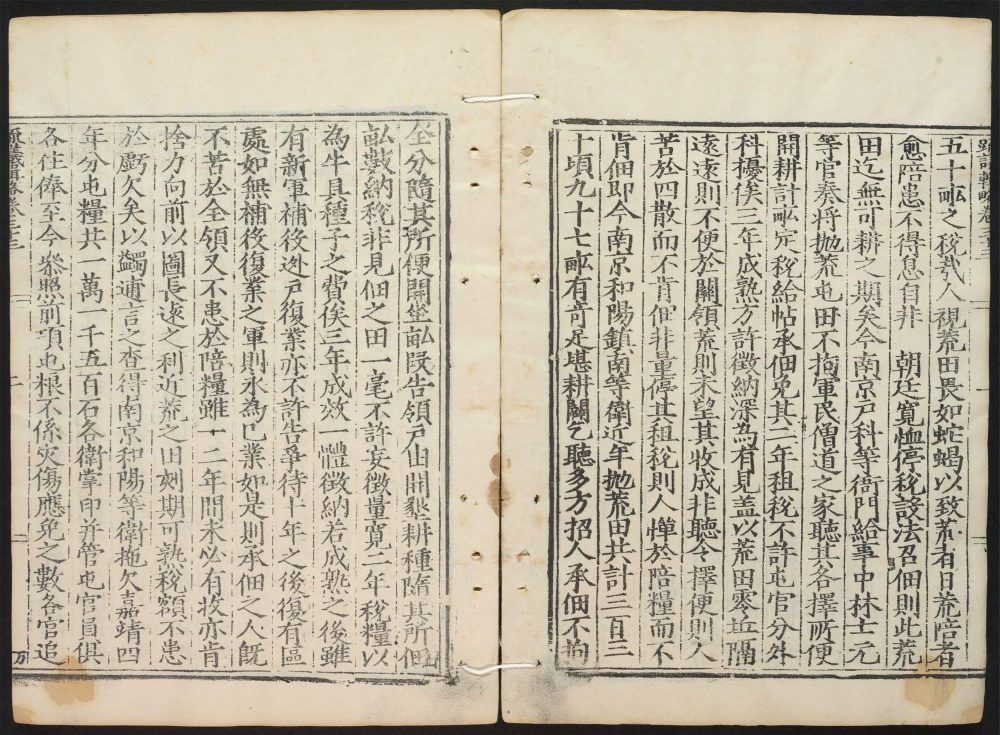 五十畝之稅義人視荒田畏如蛇蝎以致荒者日荒陪者
愈陪患不得息自非　朝廷寬恤停稅設法召佃則此荒
田迄無可耕之期矣今南京戶科等衙門給事中林士元
等官奏將拋荒屯田不拘軍民僧道之家聽其各擇所便
開耕計畝定稅給帖承佃免其二年租稅不許屯官分外
科擾俟三年成熟方許徵納深為有見蓋以荒田零坵隔
遠遠則不便於關領荒則未望其收成非聽令擇便則人
苦於四散而不肯佃非量停其租稅則人憚於陪糧而不
肯佃即今南京和陽鎮南等衛近年拋荒田共計三百三
十頃九十七畝有奇足堪耕闢乞聽多方招人承佃不拘
全分隨其所便開坐畝段告領戶由開墾耕種隨其所佃
畝數納稅非見佃之田一毫不許妄徵量寬二年稅糧以
為牛具種子之費俟三年成效一體徵納若成熟之後雖
有新軍補役逃戶復業亦不許告爭待十年之後復有區
處如無補役復業之軍則永為己業如是則承佃之人既
不苦於全領又不患於陪糧雖一二年間未必有收亦肯
捨力向前以圖長遠之利近荒之田刻期可熟稅額不患
於虧欠矣以蠲逋言之查得南京和陽等衛拖欠嘉靖四
年分屯糧共一萬一千五百石各衛掌印并管屯官員俱
各住俸至今叅照前項屯糧不係灾傷應免之數各官追